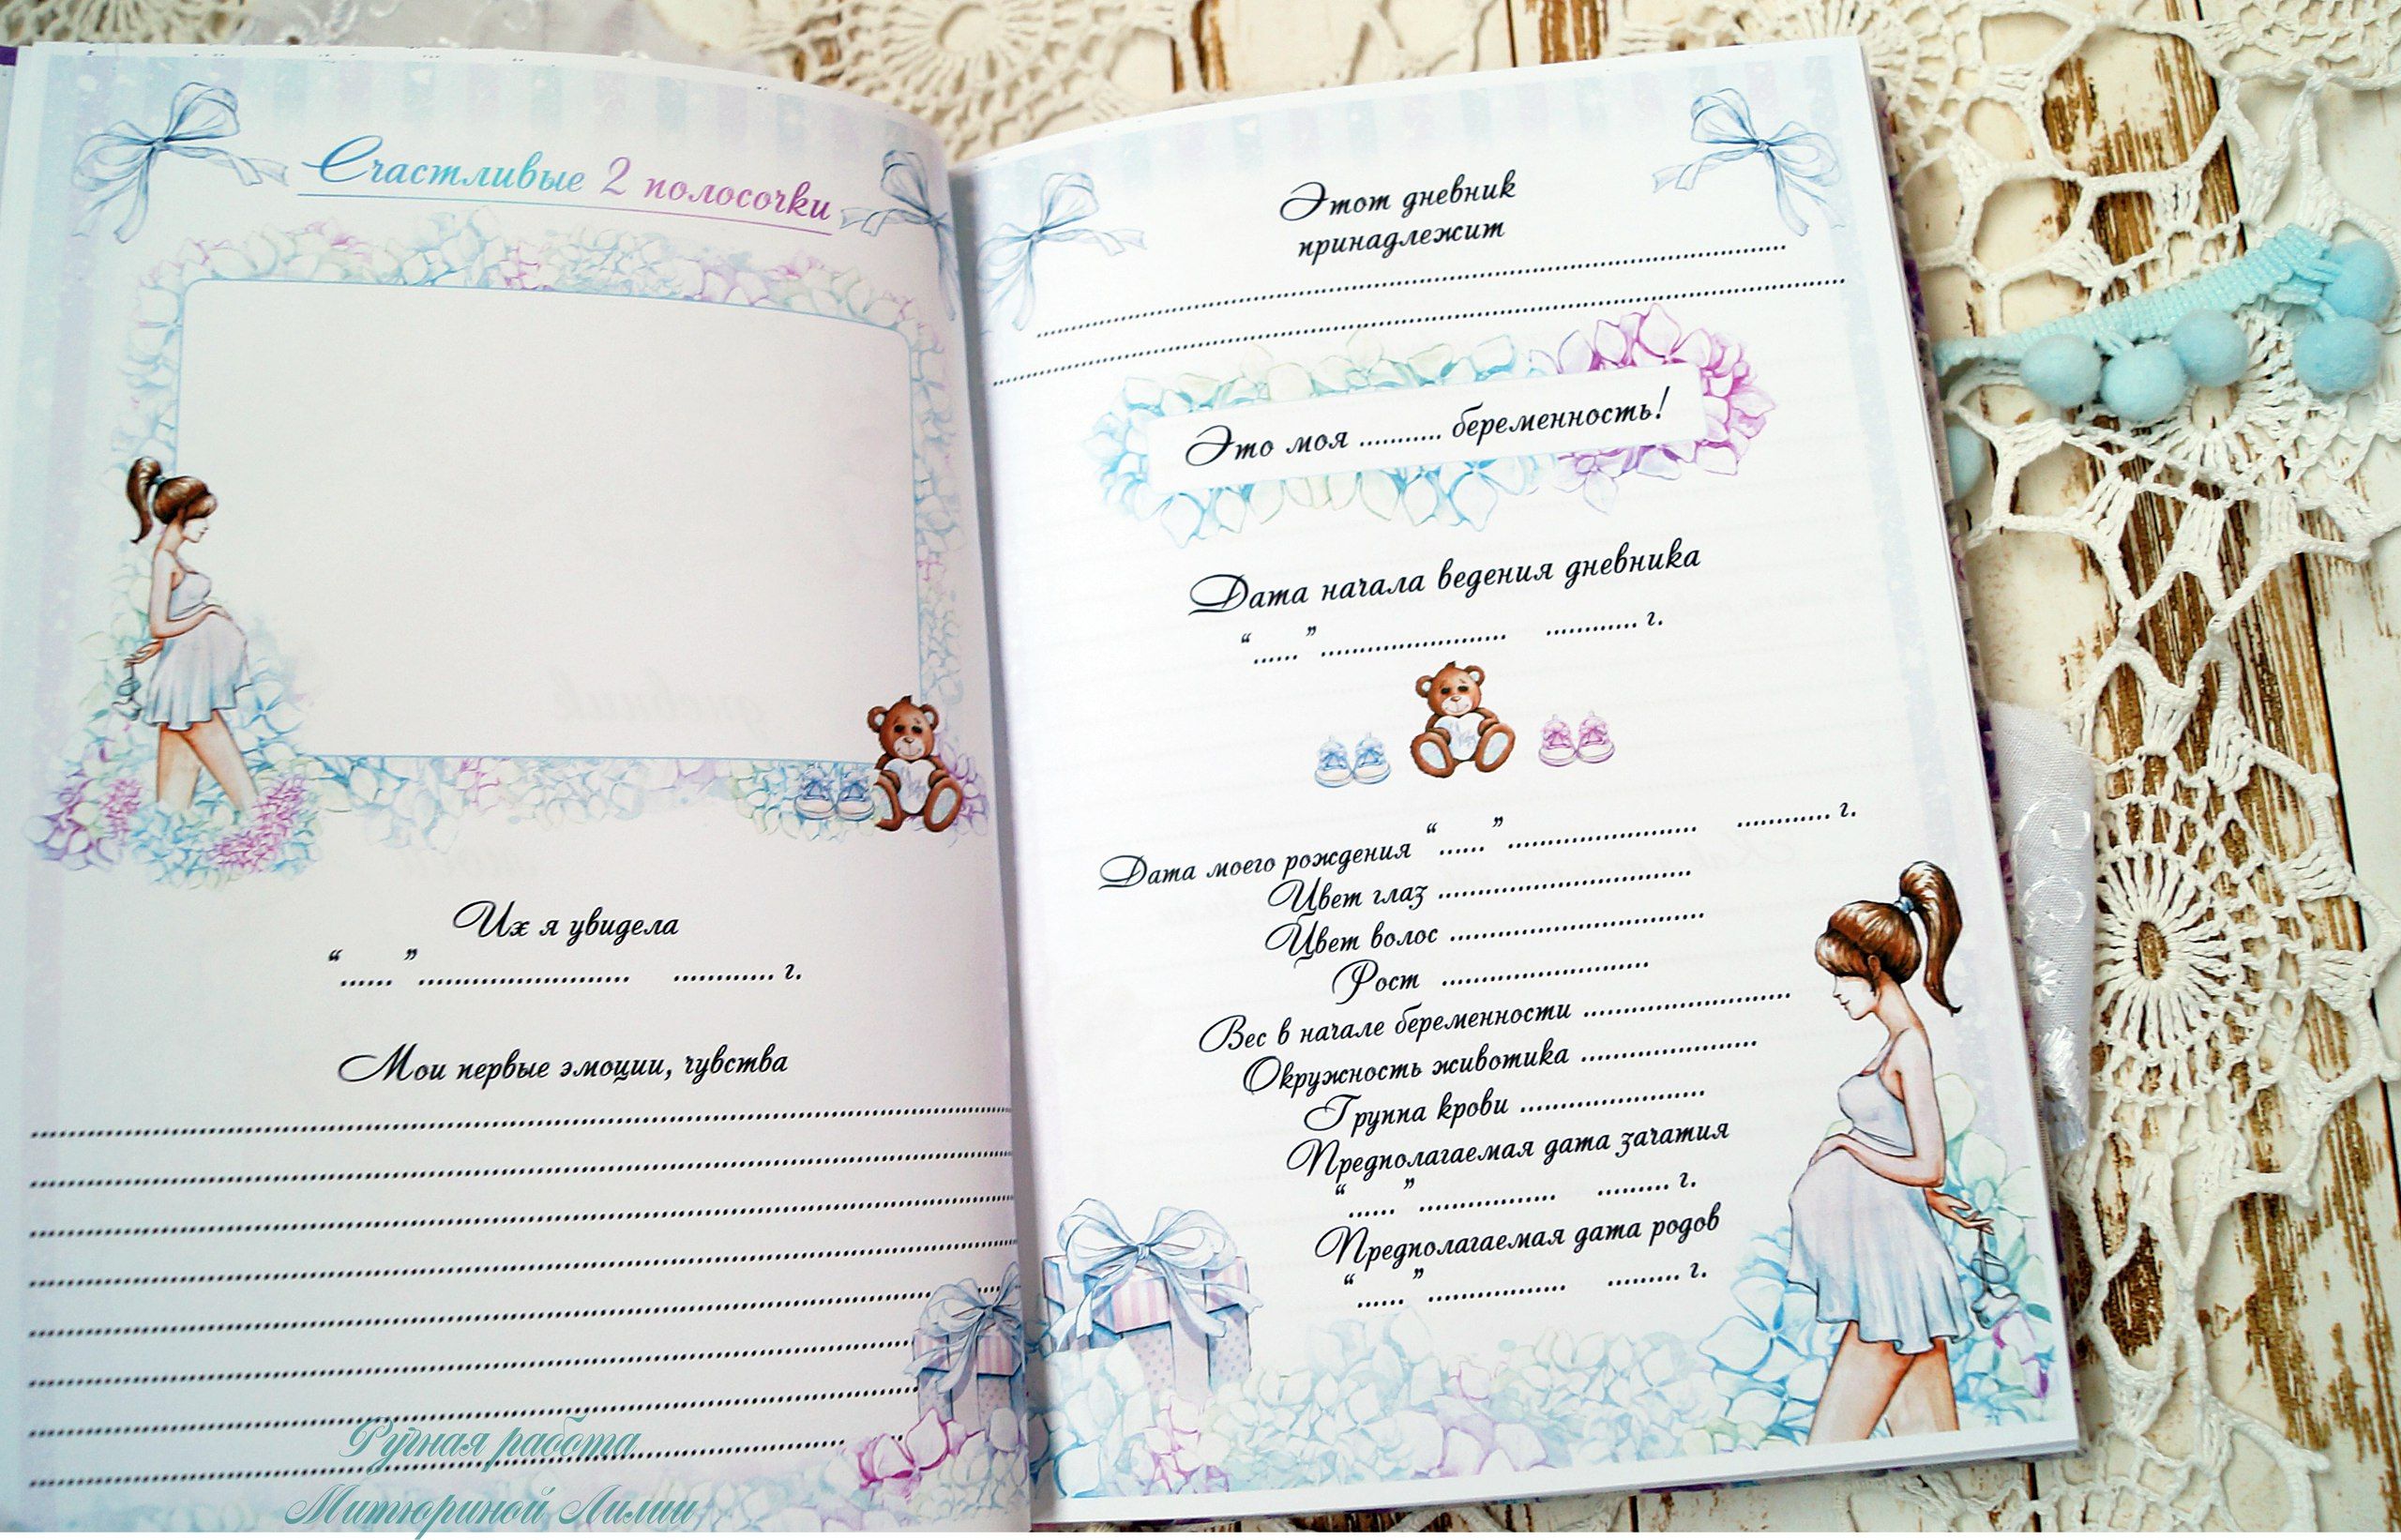 Счастливые 2 полосочки
Их я увидела
“......” ........................ ............ г.
Мои первые эмоции, чувства
Ручная работа
Митюриной Лилии
Этот дневник
принадлежит
Это моя ........... беременность!
Дата начала ведения дневника
“......” ........................ ............ г.
Дата моего рождения “......” ........................ ............ г.
Цвет глаз ................................
Цвет волос ................................
Рост ..........................
Вес в начале беременности ..........................
Окружность животика ......................
Группа крови .......................
Предполагаемая дата зачатия
“......” ................. ......... г.
Предполагаемая дата родов
“......” ................. ......... г.